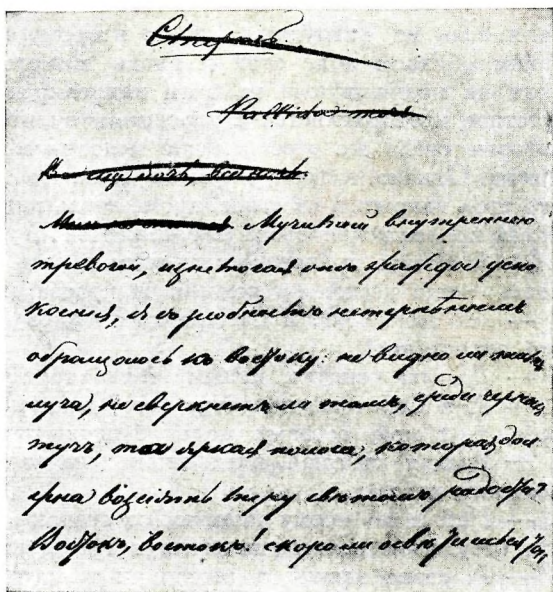 Pallida mors
Мучимый внутреннею
тревогой, изнемогая отъ жажды успо
коенія, я съ злобнымъ нетерпѣніемъ
обращаюсь къ востоку: не видно ли тамъ
луча, не сверкнетъ ли тамъ, среди черныхъ
тучъ, та яркая полоса, которая дол
жна возсіять свѣтомъ радости?
Востокъ, востокъ! скоро ли освѣтишься ты